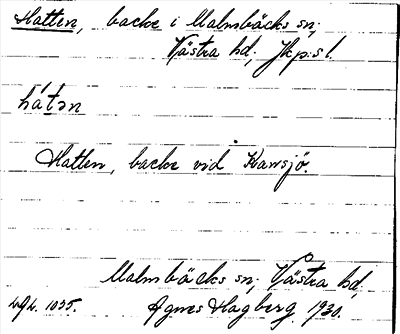 Hatten, backe i Malmbäcks sn;
Västra hd, Jkp:s l.
hát̀ən
Hatten, backe vid Kansjö.
Malmbäcks sn; Västra hd,
Agnes Hagberg 1930.
1035.